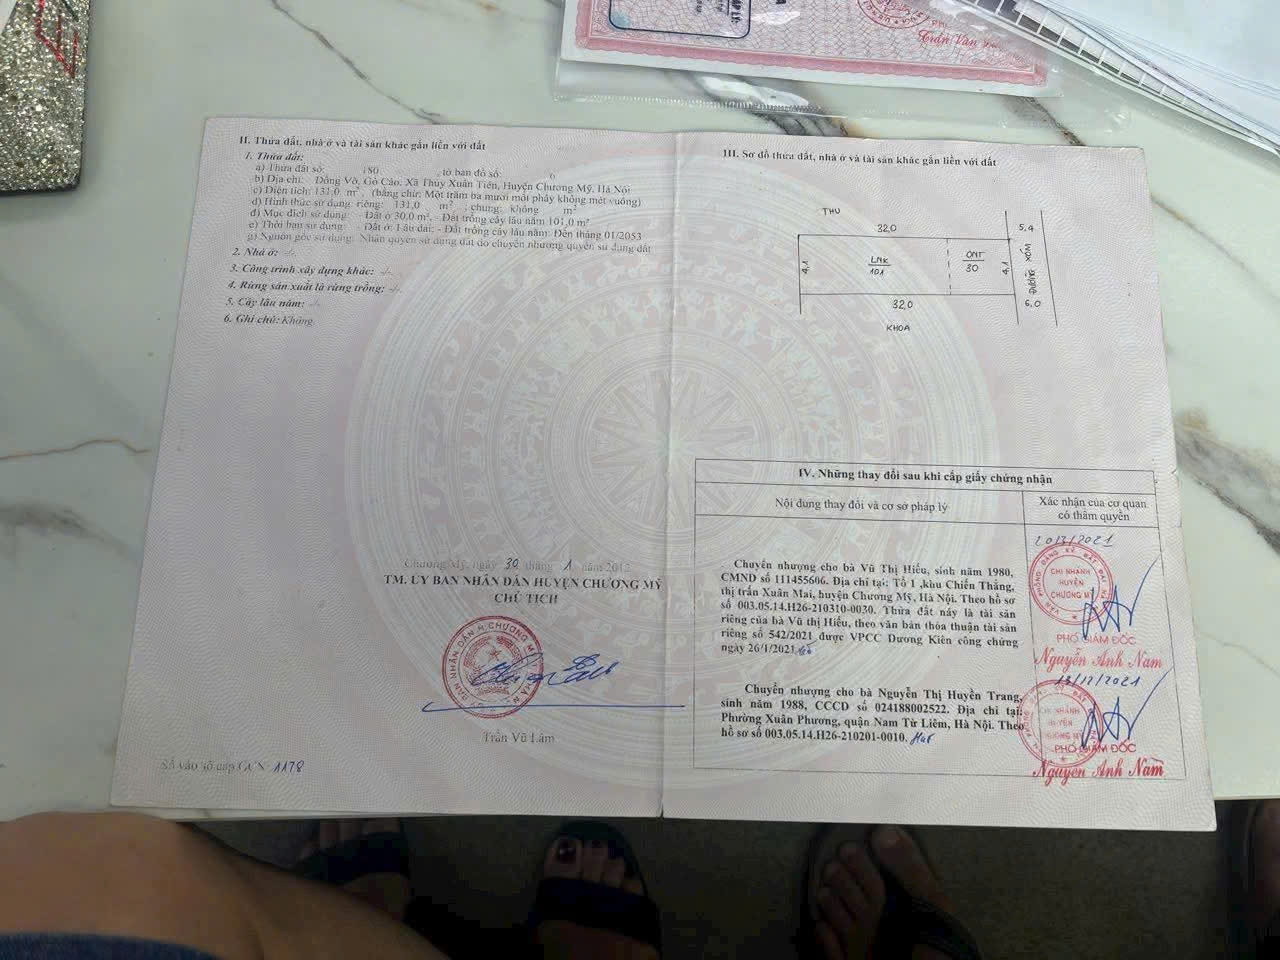 II. Thửa đất, nhà ở và tài sản khác gắn liền với đất
1. Thửa đất:
a) Thửa đất số: 180 , tờ bản đồ số: 6
b) Địa chỉ: Đồng Vỡ, Gò Cáo, Xã Thủy Xuân Tiên, Huyện Chương Mỹ, Hà Nội
c) Diện tích: 131,0 m², (bằng chữ: Một trăm ba mươi mốt phảy không mét vuông)
d) Hình thức sử dụng: riêng: 131,0 m² ; chung: không m²
đ) Mục đích sử dụng: - Đất ở 30,0 m², - Đất trồng cây lâu năm 101,0 m²
e) Thời hạn sử dụng: - Đất ở: Lâu dài; - Đất trồng cây lâu năm: Đến tháng 01/2053
g) Nguồn gốc sử dụng: Nhận quyền sử dụng đất do chuyển nhượng quyền sử dụng đất
2. Nhà ở: -/-
3. Công trình xây dựng khác: -/-
4. Rừng sản xuất là rừng trồng: -/-
5. Cây lâu năm: -/-
6. Ghi chú: Không.
Chương Mỹ, ngày 30 tháng 1 năm 2012
TM. ỦY BAN NHÂN DÂN HUYỆN CHƯƠNG MỸ
CHỦ TỊCH
Trần Vũ Lâm
Số vào sổ cấp GCN: 1178
III. Sơ đồ thửa đất, nhà ở và tài sản khác gắn liền với đất
THU
32,0
5,4
4,1
LNK
101
ONT
30
4,1
ĐƯỜNG XÓM
32,0
6,0
KHOA
IV. Những thay đổi sau khi cấp giấy chứng nhận
Nội dung thay đổi và cơ sở pháp lý
Xác nhận của cơ quan
có thẩm quyền
Chuyển nhượng cho bà Vũ Thị Hiếu, sinh năm 1980,
CMND số 111455606. Địa chỉ tại: Tổ 1 ,khu Chiến Thắng,
thị trấn Xuân Mai, huyện Chương Mỹ, Hà Nội. Theo hồ sơ
số 003.05.14.H26-210310-0030. Thửa đất này là tài sản
riêng của bà Vũ thị Hiếu, theo văn bản thỏa thuận tài sản
riêng số 542/2021 được VPCC Dương Kiên công chứng
ngày 26/1/2021
CHI NHÁNH
HUYỆN
CHƯƠNG MỸ
PHÓ GIÁM ĐỐC
Nguyễn Anh Nam
Chuyển nhượng cho bà Nguyễn Thị Huyền Trang,
sinh năm 1988, CCCD số 024188002522. Địa chỉ tại:
Phường Xuân Phương, quận Nam Từ Liêm, Hà Nội. Theo
hồ sơ số 003.05.14.H26-210201-0010.
13/12/2021
CHI NHÁNH
HUYỆN
CHƯƠNG MỸ
PHÓ GIÁM ĐỐC
Nguyễn Anh Nam